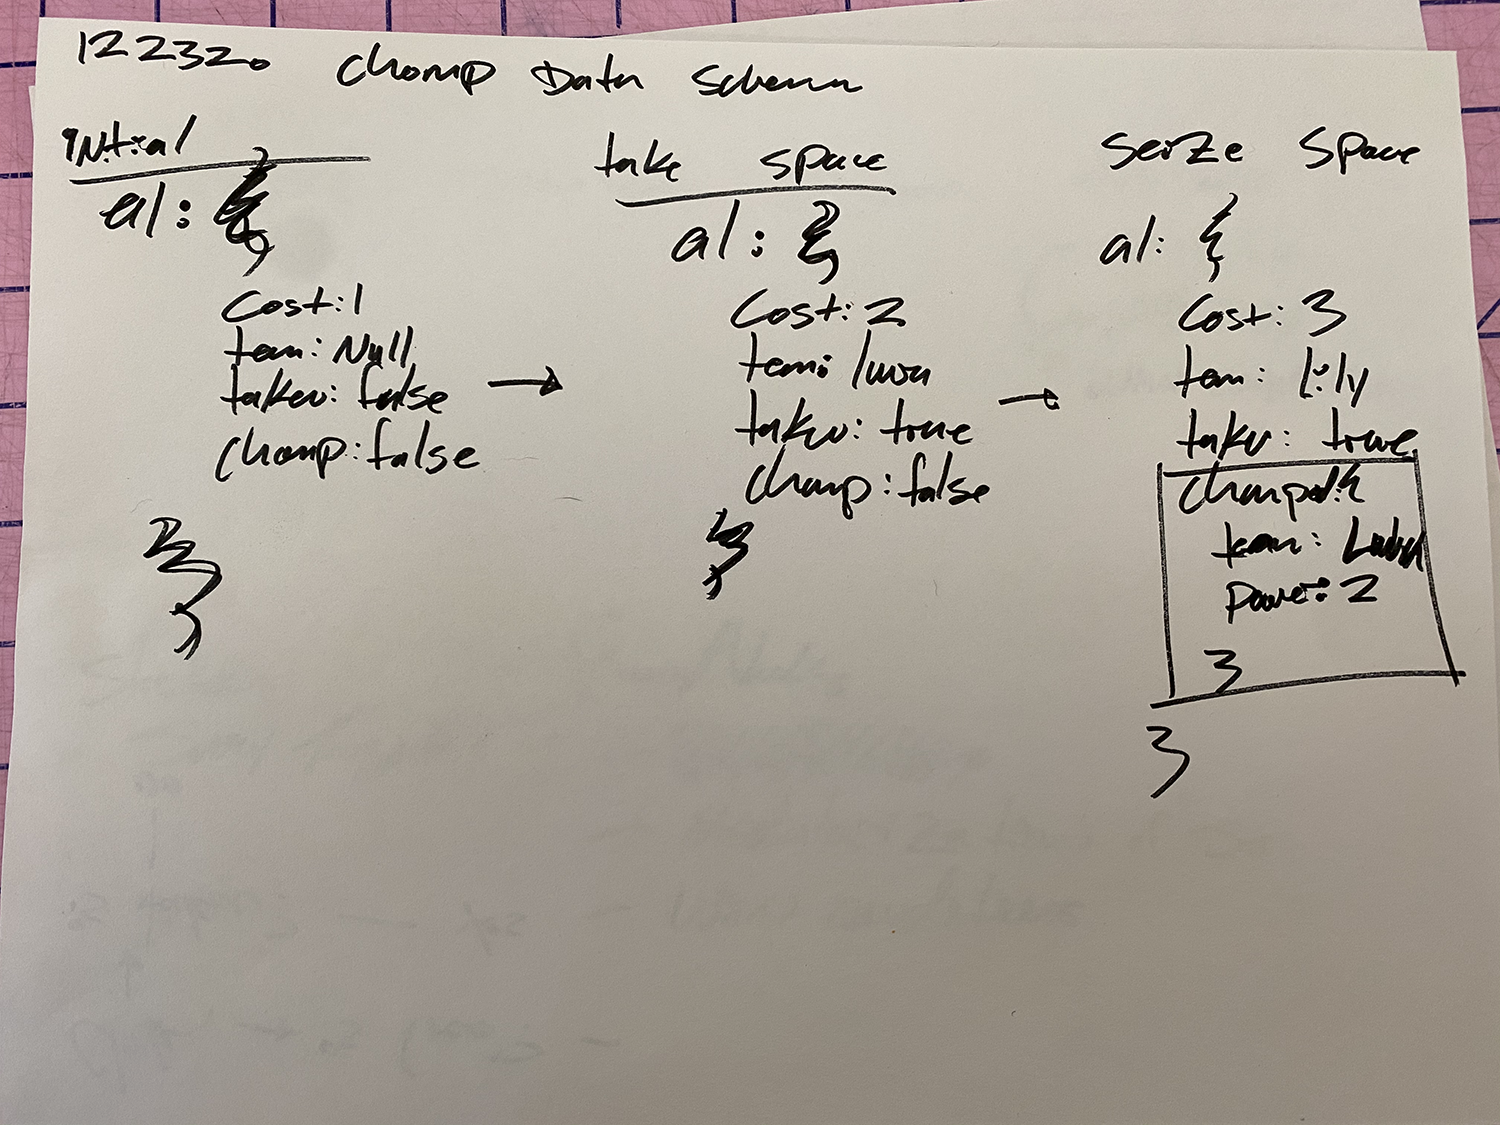 122320 Chomp Data Schema
initial
a1: {
cost: 1
team: Null
taken: false
chomp: false
}
take space
a1: {
cost: 2
team:
taken: true
chomp: false
}
seize space
a1: {
cost: 3
team: Lily
taken: true
chomped: {
team:
power: 2
}
}